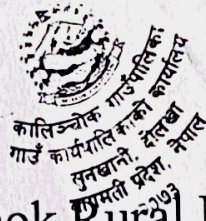 कालिञ्चोक गाउँपालिका
गाउँ कार्यपालिकाको कार्यालय
सुनखानी, दोलखा
बागमती प्रदेश, नेपाल
२०७३
Rural